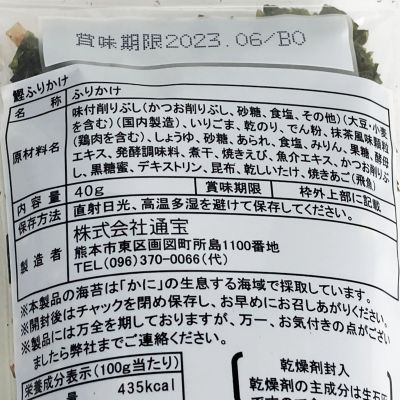 賞味期限2023.06/BO
鰹ふりかけ
名称 ふりかけ
原材料名 味付削りぶし(かつお削りぶし、砂糖、食塩、その他)(大豆・小麦
を含む)(国内製造)、いりごま、乾のり、でん粉、抹茶風味顆粒
(鶏肉を含む)、しょうゆ、砂糖、あられ、食塩、みりん、果糖、酵母
エキス、発酵調味料、煮干、焼きえび、魚介エキス、かつお削りぶ
し、黒糖蜜、デキストリン、昆布、乾しいたけ、焼きあご(飛魚)
内容量 40g 賞味期限 枠外上部に記載
保存方法 直射日光、高温多湿を避けて保存してください。
製造者 株式会社通宝
熊本市東区画図町所島1100番地
TEL(096)370-0066(代)
※本製品の海苔は「かに」の生息する海域で採取しています。
※開封後はチャックを閉め保存し、お早めにお召しあがりください。
※製品には万全を期しておりますが、万一、お気付きの点がござい
ましたら弊社までご連絡ください。
栄養成分表示(100g当たり)
435kcal
乾燥剤封入
乾燥剤の主成分は生石灰